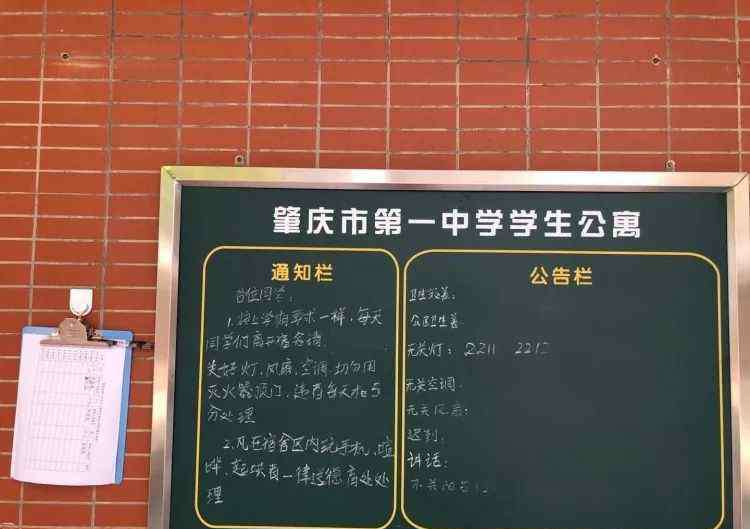 肇庆市第一中学学生公寓
通知栏
各位同学:
1.按上学期要求一样,每天
同学们离开宿舍请
关好灯、风扇、空调,切勿用
灭火器顶门,违者每天扣5
分处理
2.凡在宿舍区内玩手机、喧
哗、起哄者一律送德育处处
理
公告栏
卫生较差:
公区卫生差
无关灯: 2211 221
无关空调:
无关风扇:
迟到:
讲话:
不关